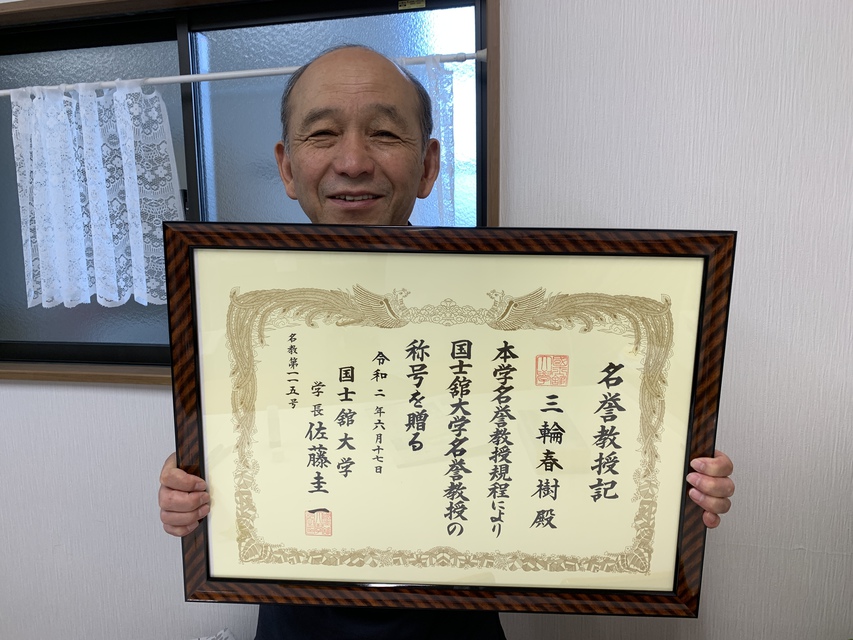 名誉教授記
三輪春樹殿
本学名誉教授規程により
国士舘大学名誉教授の
称号を贈る
令和二年六月十七日
国士舘大学
学長 佐藤圭一
名教第一一五号